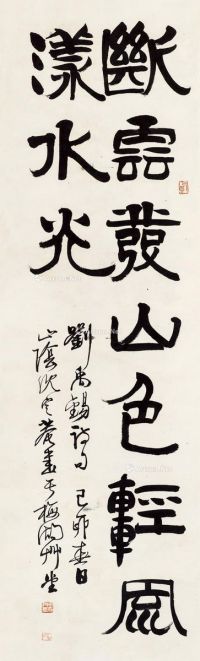 斷雲發山色輕風
漾水光
劉禹錫詩句 己卯春日
山陰沈定菴書于梅湖草堂